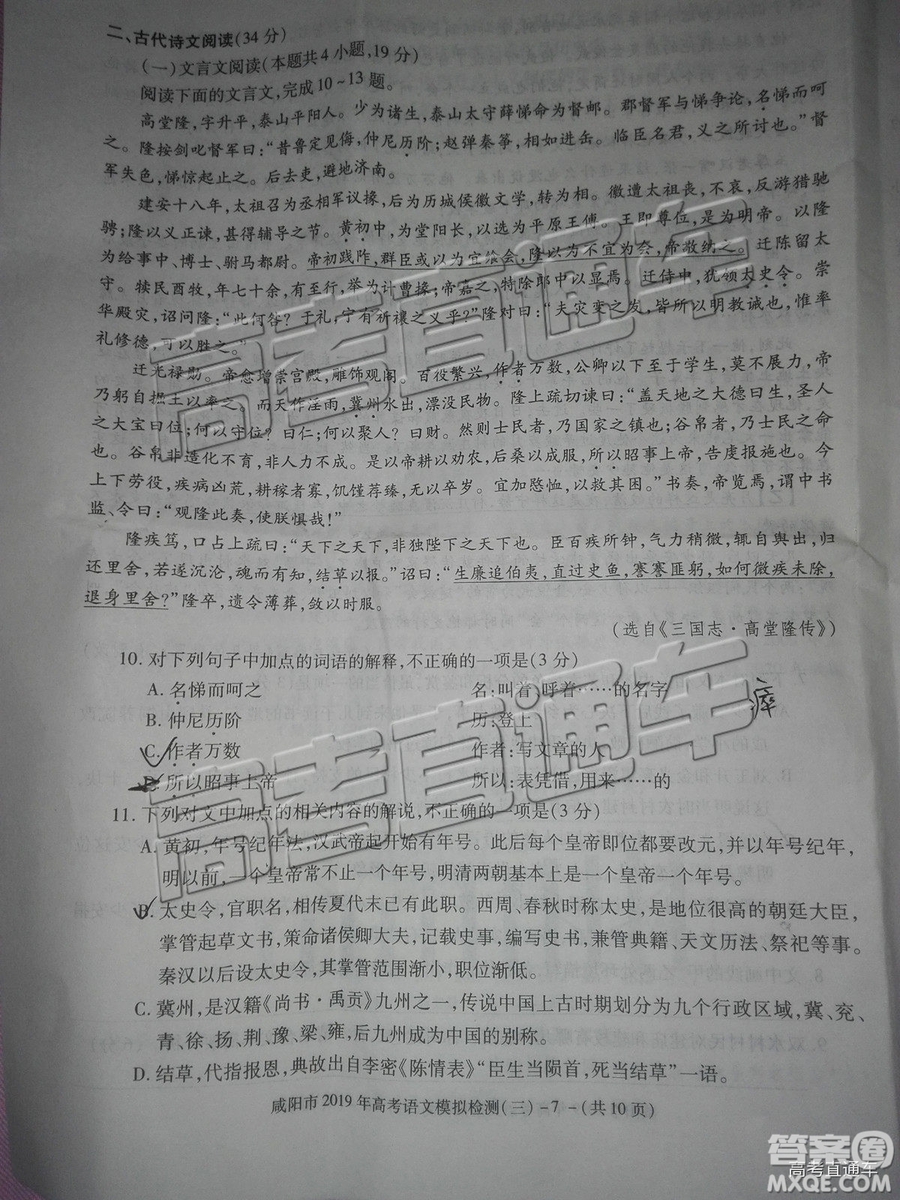 二、古代诗文阅读(34分)
(一)文言文阅读(本题共4小题,19分)
阅读下面的文言文,完成10~13题。
高堂隆,字升平,泰山平阳人。少为诸生,泰山太守薛悌命为督邮。郡督军与悌争论,名悌而呵
之。隆按剑叱督军曰:“昔鲁定见侮,仲尼历阶;赵弹秦筝,相如进缶。临臣名君,义之所讨也。”督
军失色,悌惊起止之。后去吏,避地济南。
建安十八年,太祖召为丞相军议掾,后为历城侯徽文学,转为相。徽遭太祖丧,不哀,反游猎驰
骋;隆以义正谏,甚得辅导之节。黄初中,为堂阳长,以选为平原王傅。王即尊位,是为明帝。以隆
为给事中、博士、驸马都尉。帝初践阼,群臣或以为宜飨会,隆以为不宜为会,帝敬纳之。迁陈留太
守。犊民酉牧,年七十余,有至行,举为计曹掾;帝嘉之,特除郎中以显焉。迁侍中,犹领太史令。崇
华殿灾,诏问隆:“此何咎?于礼,宁有祈禳之义乎?”隆对曰:“夫灾变之发,皆所以明教诫也,惟率
礼修德,可以胜之。”
迁光禄勋。帝愈增崇宫殿,雕饰观阁。百役繁兴,作者万数,公卿以下至于学生,莫不展力,帝
乃躬自掘土以率之。而天作淫雨,冀州水出,漂没民物。隆上疏切谏曰:“盖天地之大德曰生,圣人
之大宝曰位;何以守位?曰仁;何以聚人?曰财。然则士民者,乃国家之镇也;谷帛者,乃士民之命
也。谷帛非造化不育,非人力不成。是以帝耕以劝农,后桑以成服,所以昭事上帝,告虔报施也。今
上下劳役,疾病凶荒,耕稼者寡,饥馑荐臻,无以卒岁。宜加愍恤,以救其困。”书奏,帝览焉,谓中书
监、令曰:“观隆此奏,使朕惧哉!”
隆疾笃,口占上疏曰:“天下之天下,非独陛下之天下也。臣百疾所钟,气力稍微,辄自舆出,
归还里舍,若遂沉沦,魂而有知,结草以报。”诏曰:“生廉追伯夷,直过史鱼,謇謇匪躬,如何微疾未除,
退身里舍?”隆卒,遗令薄葬,敛以时服。
(选自《三国志·高堂隆传》)
10. 对下列句子中加点的词语的解释,不正确的一项是(3分)
A. 名悌而呵之 名:叫着、呼着……的名字
B. 仲尼历阶 历:登上
C. 作者万数 作者:写文章的人
D. 所以昭事上帝 所以:表凭借,用来……的
11. 下列对文中加点的相关内容的解说,不正确的一项是(3分)
A. 黄初,年号纪年法,汉武帝起开始有年号。此后每个皇帝即位都要改元,并以年号纪年,
明以前,一个皇帝常不止一个年号,明清两朝基本上是一个皇帝一个年号。
B. 太史令,官职名,相传夏代末已有此职。西周、春秋时称太史,是地位很高的朝廷大臣,
掌管起草文书,策命诸侯卿大夫,记载史事,编写史书,兼管典籍、天文历法、祭祀等事。
秦汉以后设太史令,其掌管范围渐小,职位渐低。
C. 冀州,是汉籍《尚书·禹贡》九州之一,传说中国上古时期划分为九个行政区域,冀、兖、
青、徐、扬、荆、豫、梁、雍,后九州成为中国的别称。
D. 结草,代指报恩,典故出自李密《陈情表》“臣生当陨首,死当结草”一语。
咸阳市2019年高考语文模拟检测(三)-7-(共10页)
高考直通车
高考直通车
答案圈
高考直通车
MXQE.COM